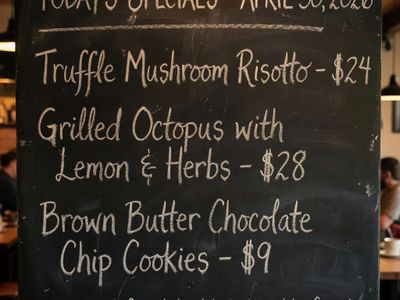 TODAY'S SPECIALS - APRIL 30, 2026
Truffle Mushroom Risotto - $24
Grilled Octopus with
Lemon & Herbs - $28
Brown Butter Chocolate
Chip Cookies - $9